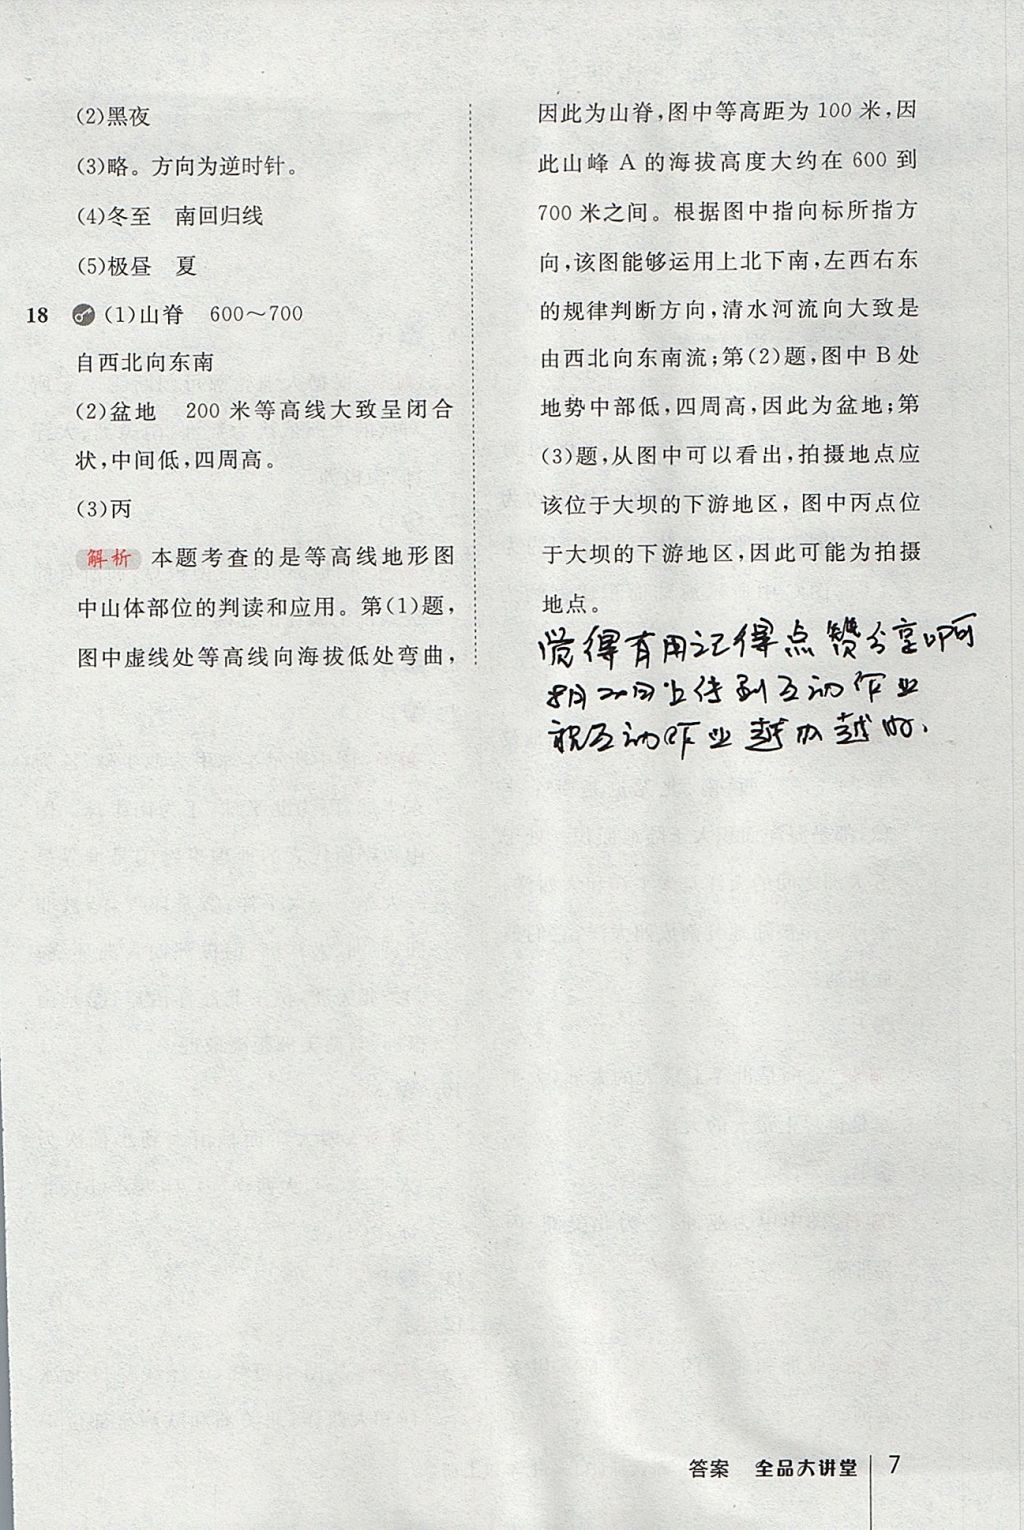 (2)黑夜
(3)略。方向为逆时针。
(4)冬至　南回归线
(5)极昼　夏
18 (1)山脊　600～700
自西北向东南
(2)盆地　200 米等高线大致呈闭合
状,中间低,四周高。
(3)丙
解析 本题考查的是等高线地形图
中山体部位的判读和应用。第(1)题,
图中虚线处等高线向海拔低处弯曲,
因此为山脊,图中等高距为 100 米,因
此山峰 A 的海拔高度大约在 600 到
700 米之间。根据图中指向标所指方
向,该图能够运用上北下南,左西右东
的规律判断方向,清水河流向大致是
由西北向东南流;第(2)题,图中 B 处
地势中部低,四周高,因此为盆地;第
(3)题,从图中可以看出,拍摄地点应
该位于大坝的下游地区,图中丙点位
于大坝的下游地区,因此可能为拍摄
地点。
觉得有用记得点赞分享啊
8月20日上传到互动作业
祝互动作业越办越好.
答案　全品大讲堂　7